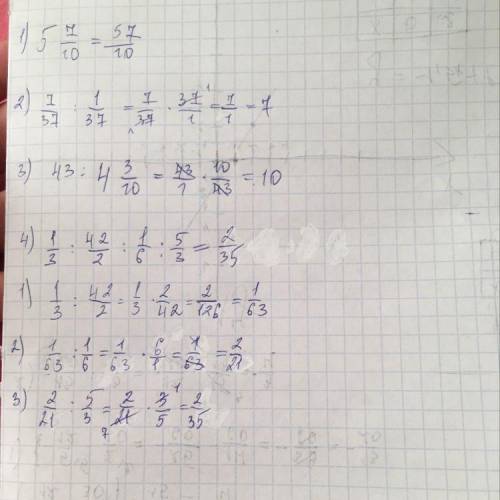 1) 5 7/10 = 57/10
2) 7/37 : 1/37 = 7/37 · 37/1 = 7/1 = 7
3) 43 : 4 3/10 = 43/1 · 10/43 = 10
4) 1/3 : 42/2 : 1/6 : 5/3 = 2/35
1) 1/3 : 42/2 = 1/3 · 2/42 = 2/126 = 1/63
2) 1/63 : 1/6 = 1/63 · 6/1 = 1/63 = 2/21
3) 2/21 : 5/3 = 2/21 · 3/5 = 2/35